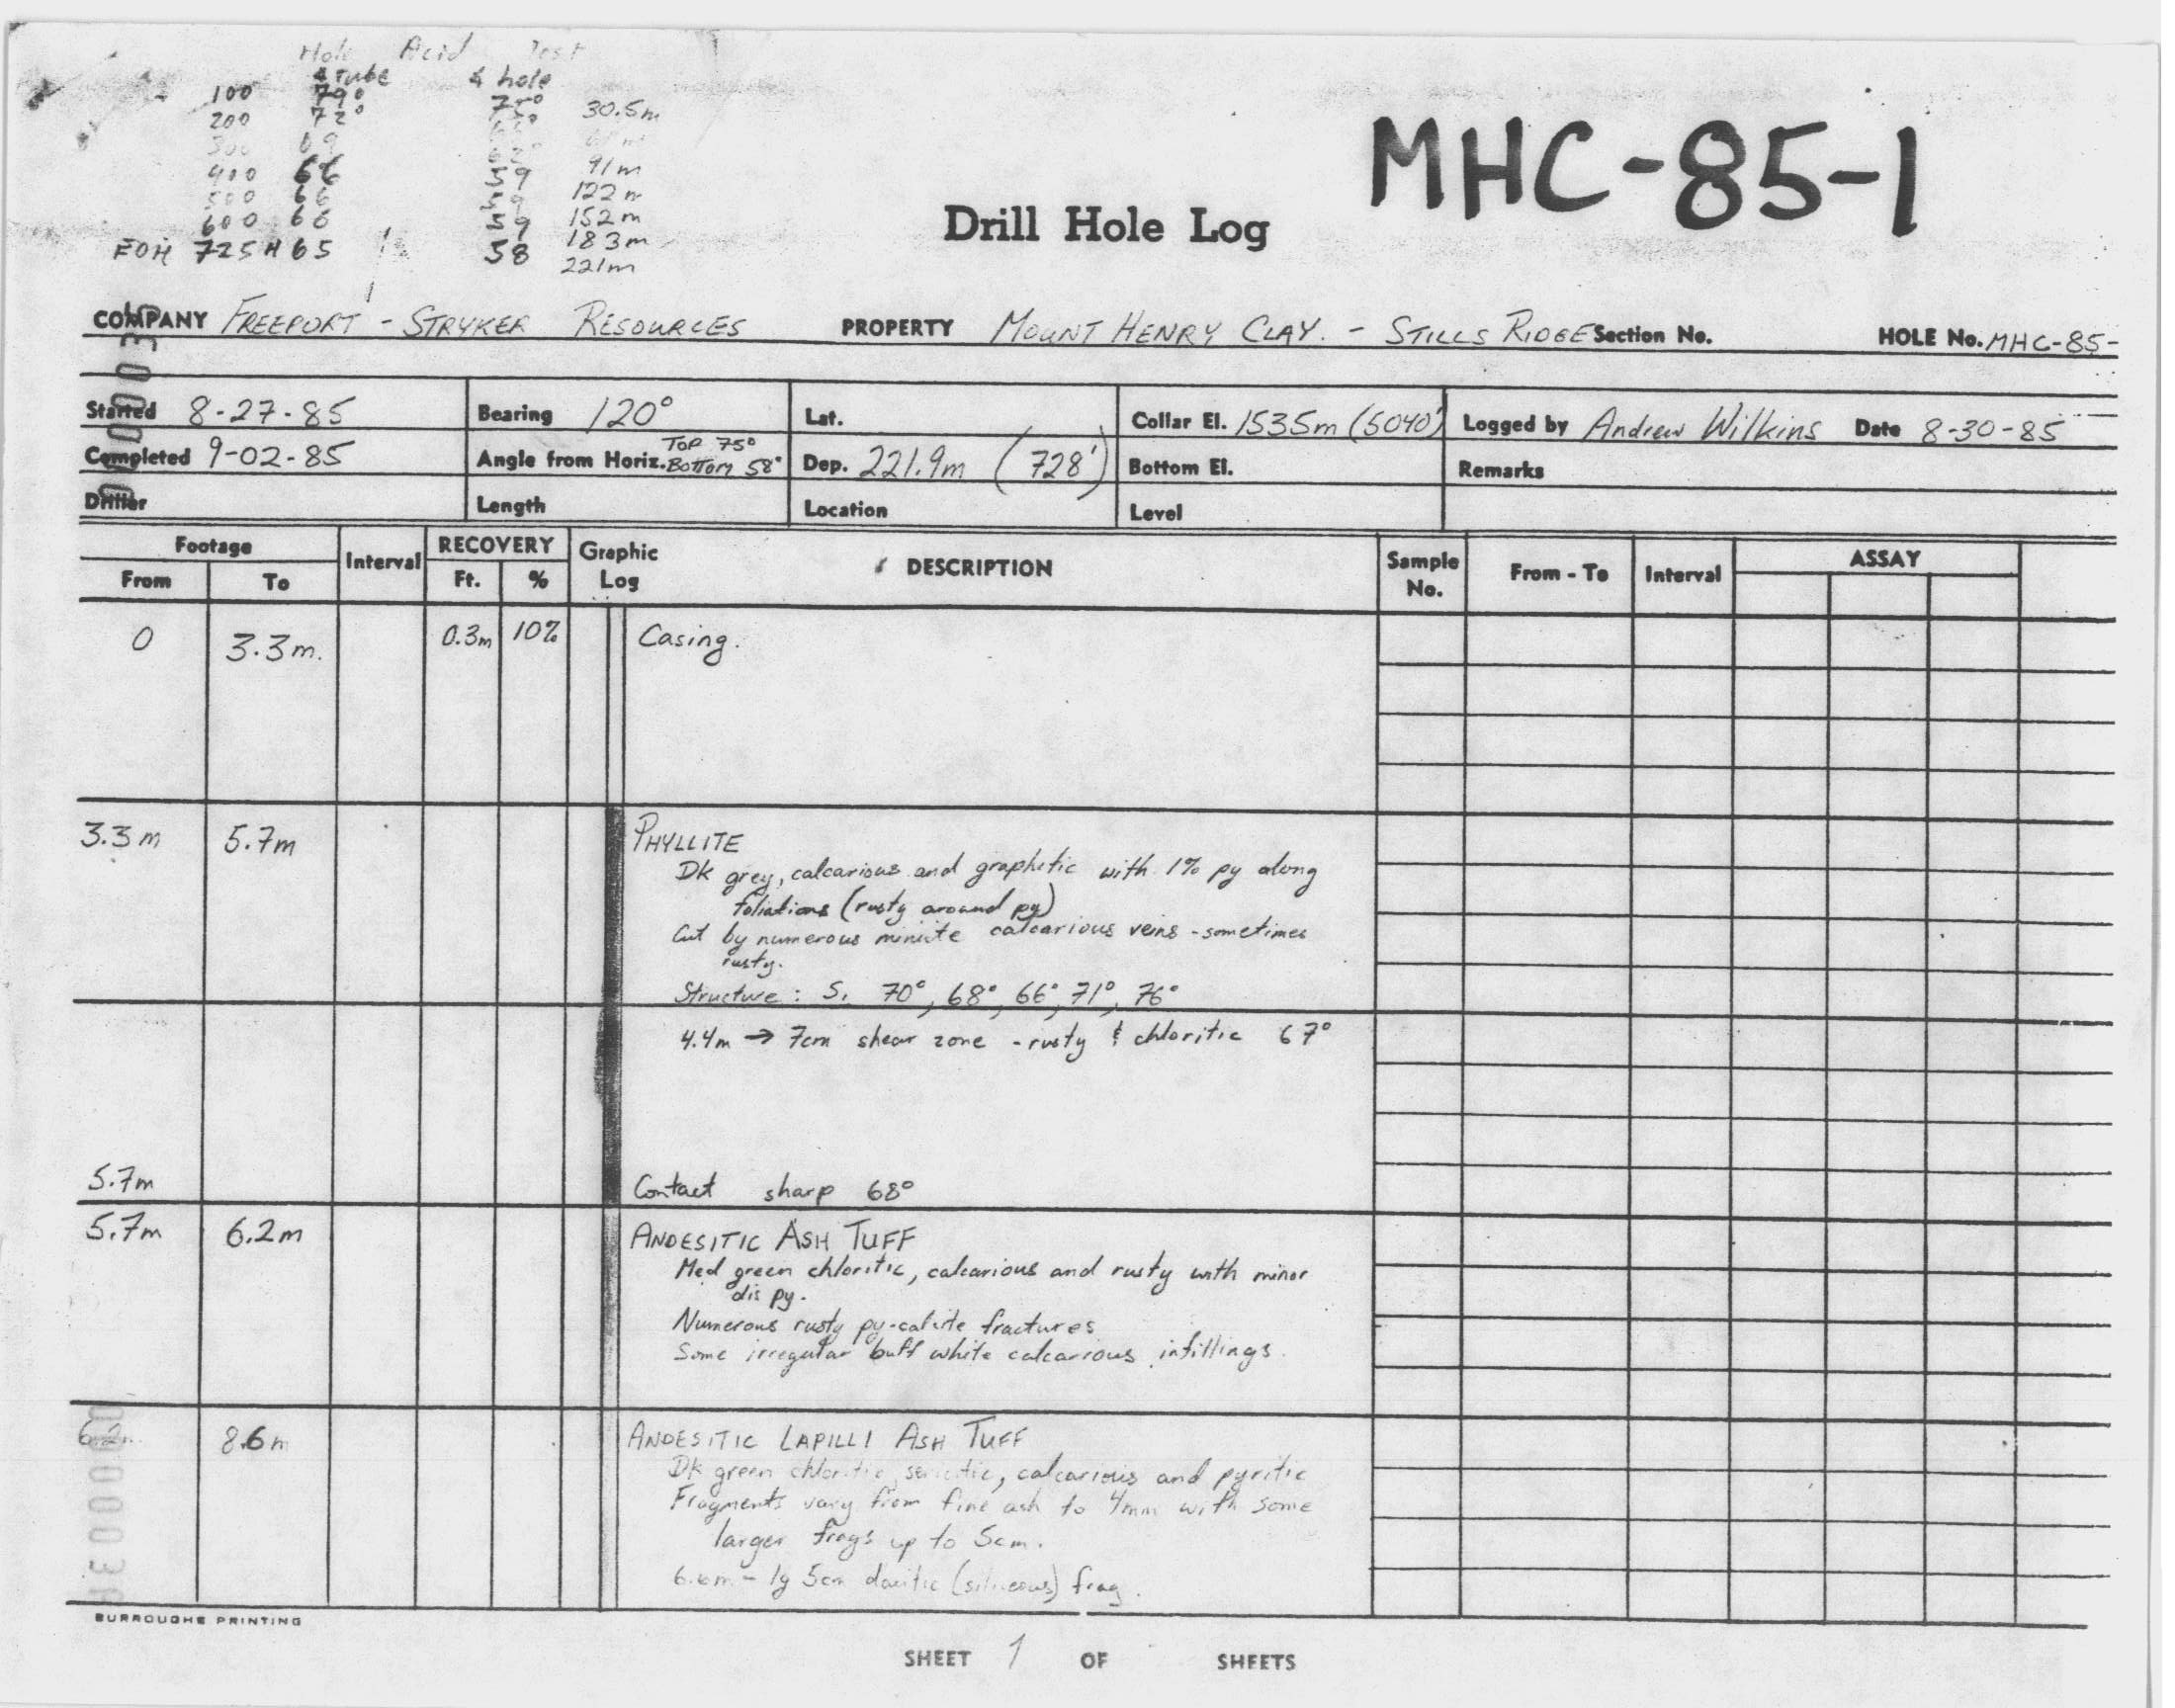 Hole Acid Test
∡ tube ∡ hole
100 79° 75° 30.5m
200 72°
300 69
400 66 59 91m
500 66 59 122m
600 66 59 152m
183m
EOH 725 ft 65 58
221m
MHC-85-1
Drill Hole Log
COMPANY FREEPORT - STRYKER RESOURCES PROPERTY MOUNT HENRY CLAY. - STILLS RIDGE Section No. HOLE No. MHC-85-
Started 8-27-85 Bearing 120° Lat. Collar El. 1535m (5040') Logged by Andrew Wilkins Date 8-30-85
Completed 9-02-85 Angle from Horiz. Top 75° Bottom 58° Dep. 221.9m (728') Bottom El. Remarks
Driller Length Location Level
Footage Interval RECOVERY Graphic Log DESCRIPTION Sample No. From - To Interval ASSAY
From To Ft. %
0 3.3m. 0.3m 10% Casing.
3.3m 5.7m PHYLLITE
Dk grey, calcarious and graphetic with 1% py along
foliations (rusty around py)
Cut by numerous minute calcarious veins - sometimes
rusty.
Structure : S₁ 70°, 68°, 66°, 71°, 76°
4.4m → 7cm shear zone - rusty & chloritic 67°
5.7m Contact sharp 68°
5.7m 6.2m ANDESITIC ASH TUFF
Med green chloritic, calcarious and rusty with minor
dis py.
Numerous rusty py-calcite fractures
Some irregular buff white calcarious infillings.
6.2m 8.6m ANDESITIC LAPILLI ASH TUFF
Dk green chloritic, sericitic, calcarious and pyritic
Fragments vary from fine ash to 4mm with some
larger frags up to 5cm.
lg 5cm dacitic (siliceous) frag.
BURROUGHS PRINTING
SHEET 1 OF SHEETS